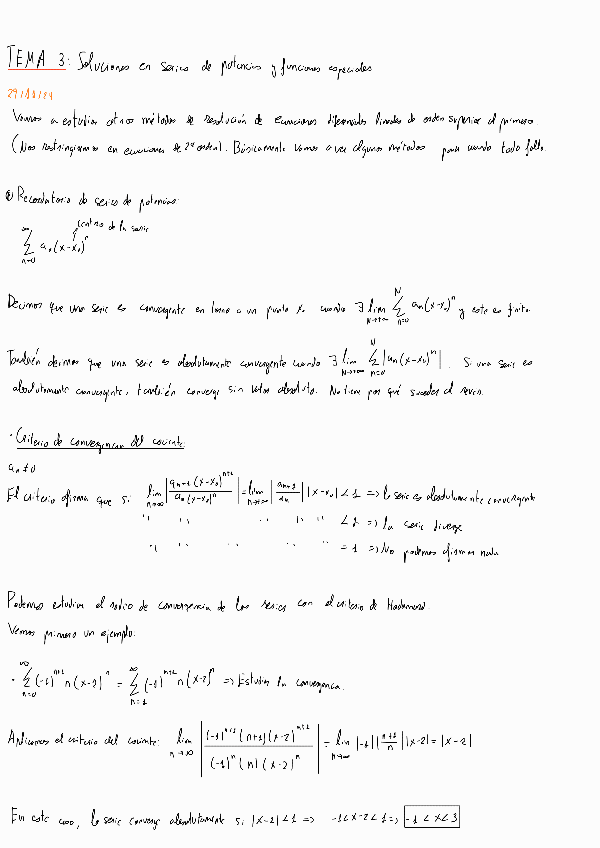 TEMA 3: Soluciones en series de potencias y funciones especiales
29/11/24
Vamos a estudiar otros métodos de resolución de ecuaciones diferenciales lineales de orden superior al primero.
(Nos restringiremos en ecuaciones de 2º orden). Básicamente vamos a ver algunos métodos para cuando todo falla.
Recordatorio de series de potencias:
centro de la serie
∞ Σ n=0 a_n (x-x₀)^n
Decimos que una serie es convergente en torno a un punto x₀ cuando ∃ lim N→+∞ N Σ n=0 a_n (x-x₀)^n y este es finito.
También decimos que una serie es absolutamente convergente cuando ∃ lim N→+∞ N Σ n=0 |a_n (x-x₀)^n|. Si una serie es
absolutamente convergente, también converge sin valor absoluto. No tiene por qué suceder al revés.
· Criterio de convergencia del cociente:
a_n ≠ 0
El criterio afirma que si lim n→∞ |a_{n+1} (x-x₀)^{n+1} / a_n (x-x₀)^n| = lim n→∞ |a_{n+1} / a_n| |x-x₀| < 1 => la serie es absolutamente convergente
" " " " " => la serie diverge
" " " " " = 1 => No podemos afirmar nada
Podemos estudiar el radio de convergencia de las series con el criterio de Hadamard.
Veamos primero un ejemplo:
· ∞ Σ n=0 (-1)^{n+1} n (x-2)^n = ∞ Σ n=1 (-1)^{n+1} n (x-2)^n => Estudiar la convergencia.
Aplicamos el criterio del cociente: lim n→∞ |(-1)^{n+1} (n+1) (x-2)^{n+1} / (-1)^n (n) (x-2)^n| = lim n→∞ |-1| |n+1 / n| |x-2| = |x-2|
En este caso, la serie converge absolutamente si |x-2| < 1 => -1 < x-2 < 1 => -1 < x < 3